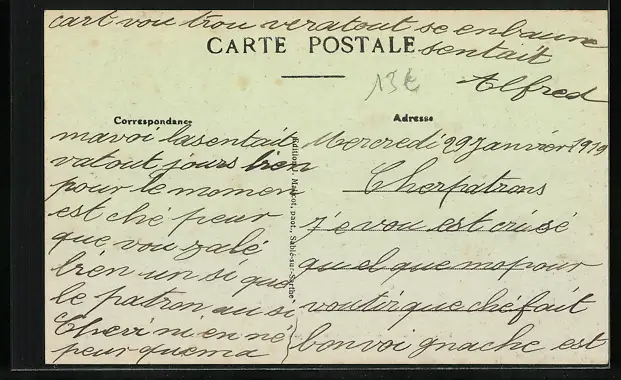 cart vou trou veratout se enbaune
sentait
CARTE POSTALE
Alfred
13€
Correspondance
Adresse
Mercredi 29 Janvier 1919
Cherpatrons
J'e vou est cri sé
quel que mo pour
voutir que ché fait
bon voi gnache est
mavoi lasentait
vatout jours bien
pour le momen
est ché peur
que vou zalé
bien un si que
le patron au si
Cheri ni en né
peur quema
Editions J. Malicot, phot., Sablé-sur-Sarthe